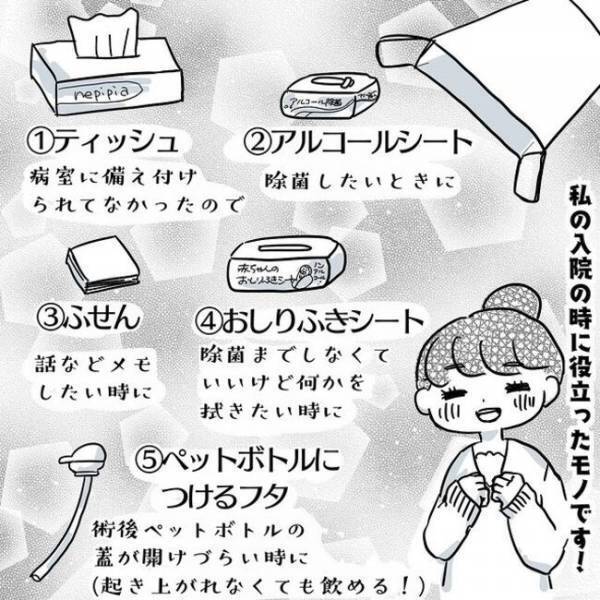 私の入院の時に役立ったモノです！
nepipia
①ティッシュ
病室に備え付け
られてなかったので
アルコール除菌
②アルコールシート
除菌したいときに
③ふせん
話などメモ
したい時に
赤ちゃんの
おしりふきシート
ノン
アル
コール！
④おしりふきシート
除菌までしなくて
いいけど何かを
拭きたい時に
⑤ペットボトルに
つけるフタ
術後ペットボトルの
蓋が開けづらい時に
(起き上がれなくても飲める！)